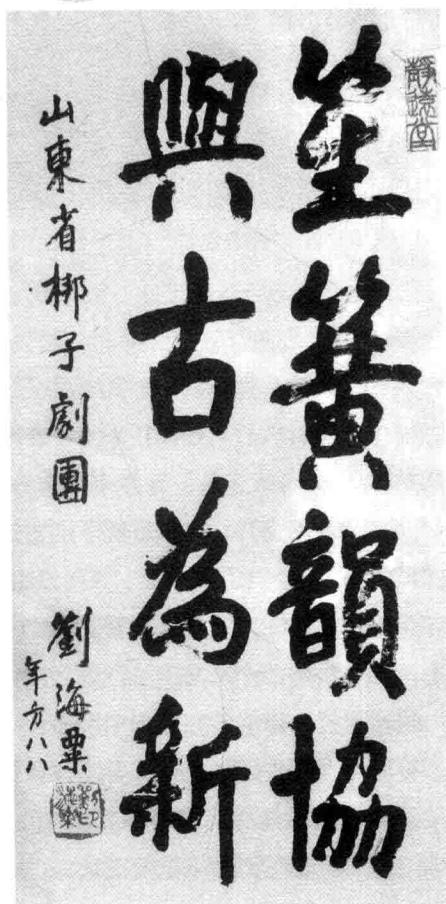 笙簧韻協
與古為新
山東省梆子劇團
劉海粟
年方八八